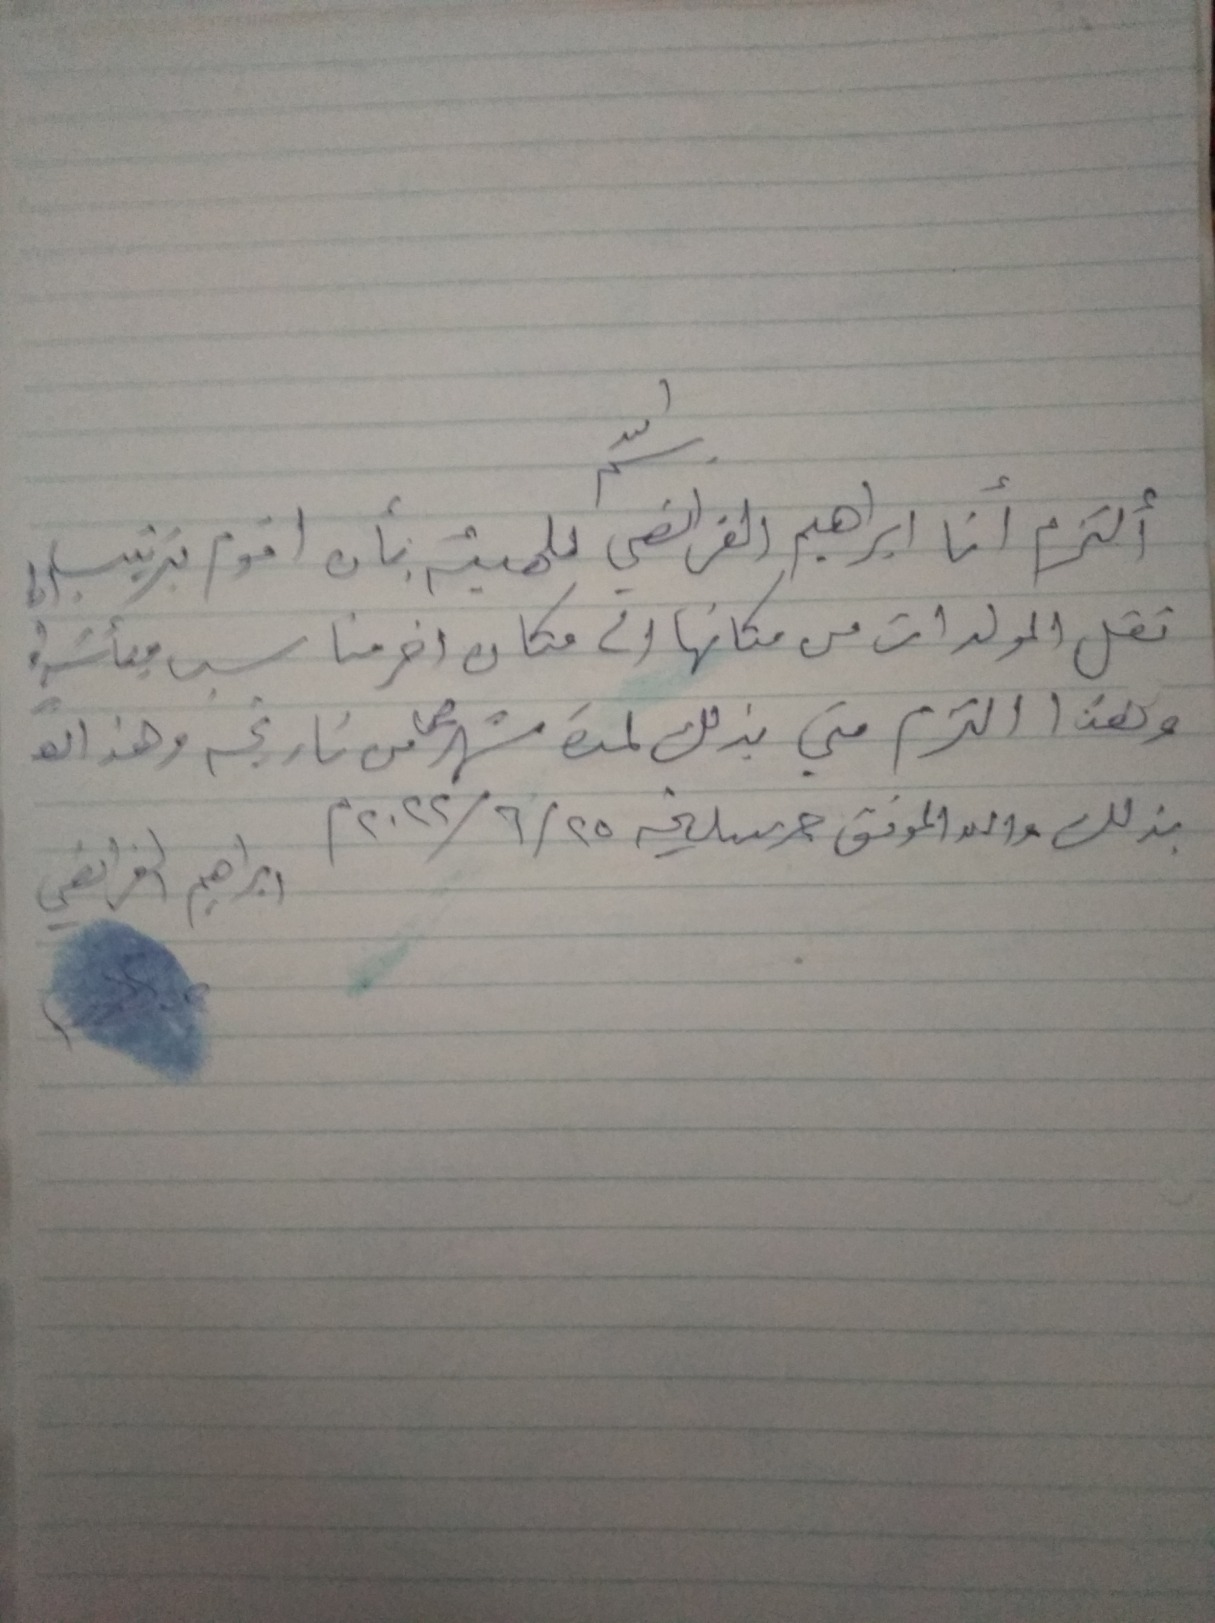 بسم الله
ألتزم أنا ابراهيم الفرائضي للهيئة بأن اقوم بترتيب
نقل المولدات من مكانها الى مكان اخر مناسب
وهذا التزم مني بذلك لمدة شهر من تاريخه وهذا
بذلك والله الموفق حرر بتاريخه ٢٠٢٢/٦/٢٥م
ابراهيم الفرائضي